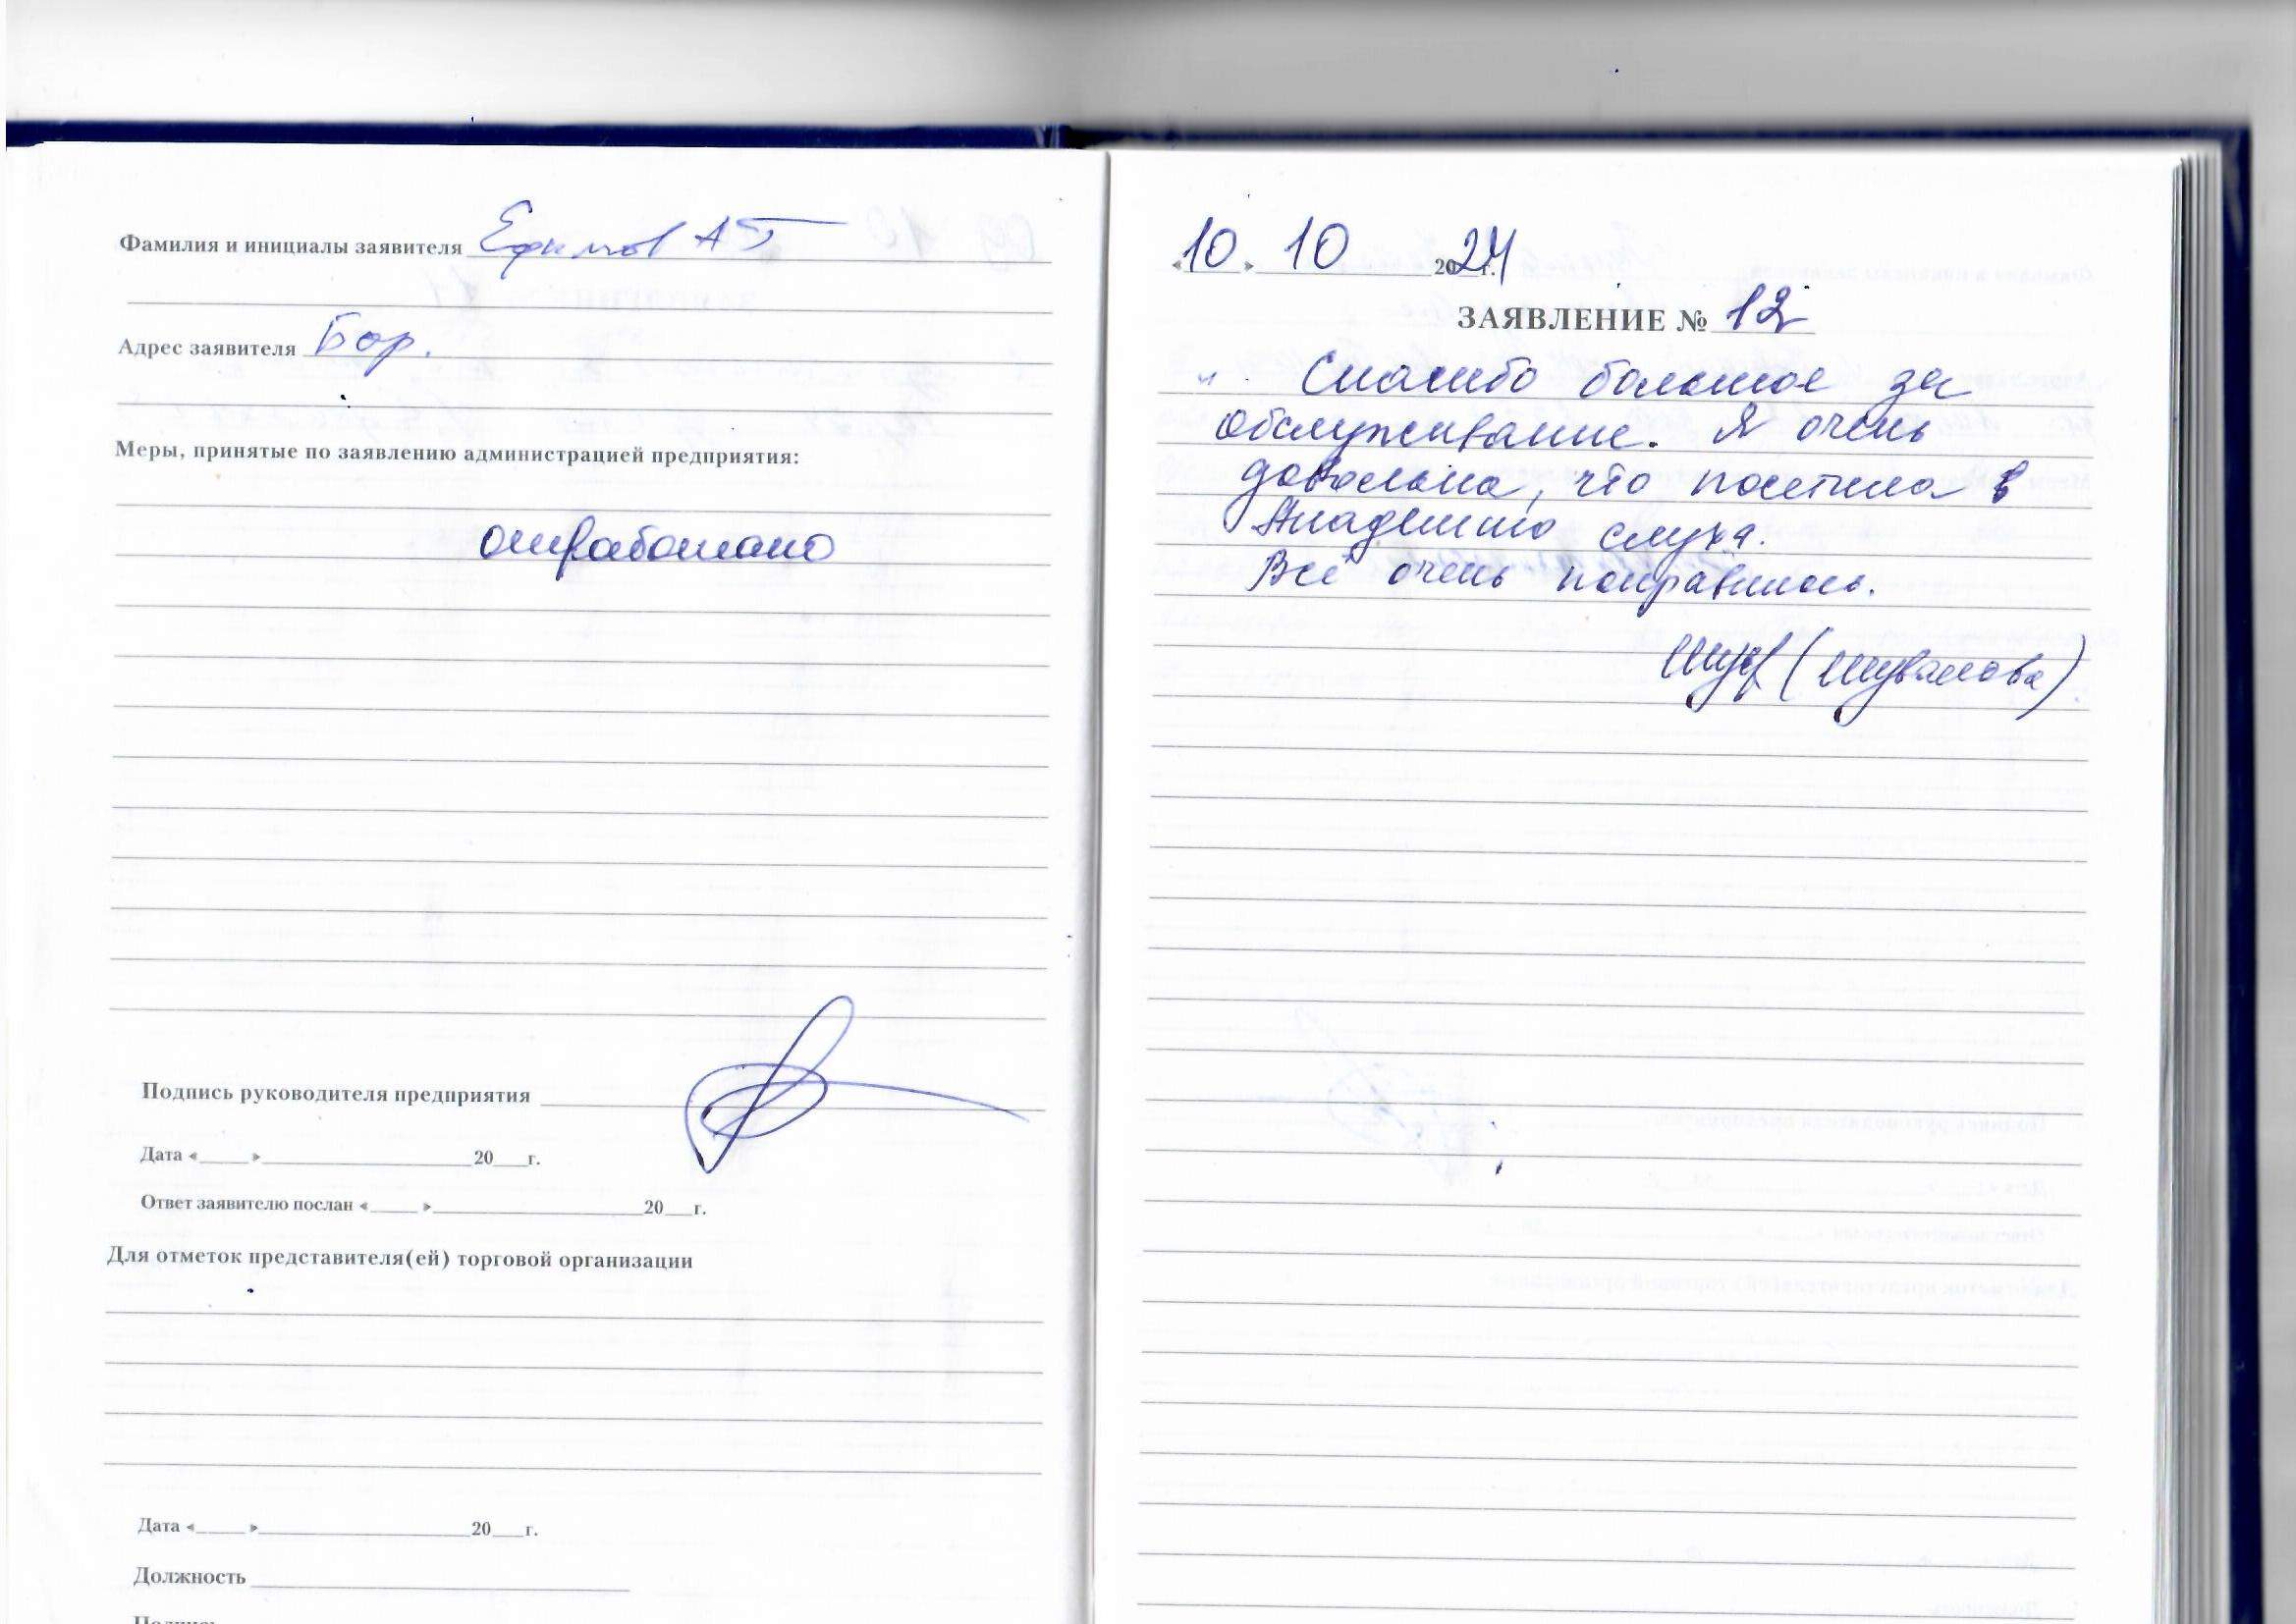 Фамилия и инициалы заявителя Ефимов А Г
Адрес заявителя Бор.
Меры, принятые по заявлению администрацией предприятия:
отработано
Подпись руководителя предприятия
Дата «____» ____ 20__г.
Ответ заявителю послан «____» ____ 20__г.
Для отметок представителя(ей) торговой организации
Дата «____» ____ 20__г.
Должность
Подпись
«10.» 10 2024г.
ЗАЯВЛЕНИЕ № 12
Спасибо большое за
обслуживание. Я очень
довольна, что посетила в
Академию слуха.
Всё очень понравилось.
(Шувалова)